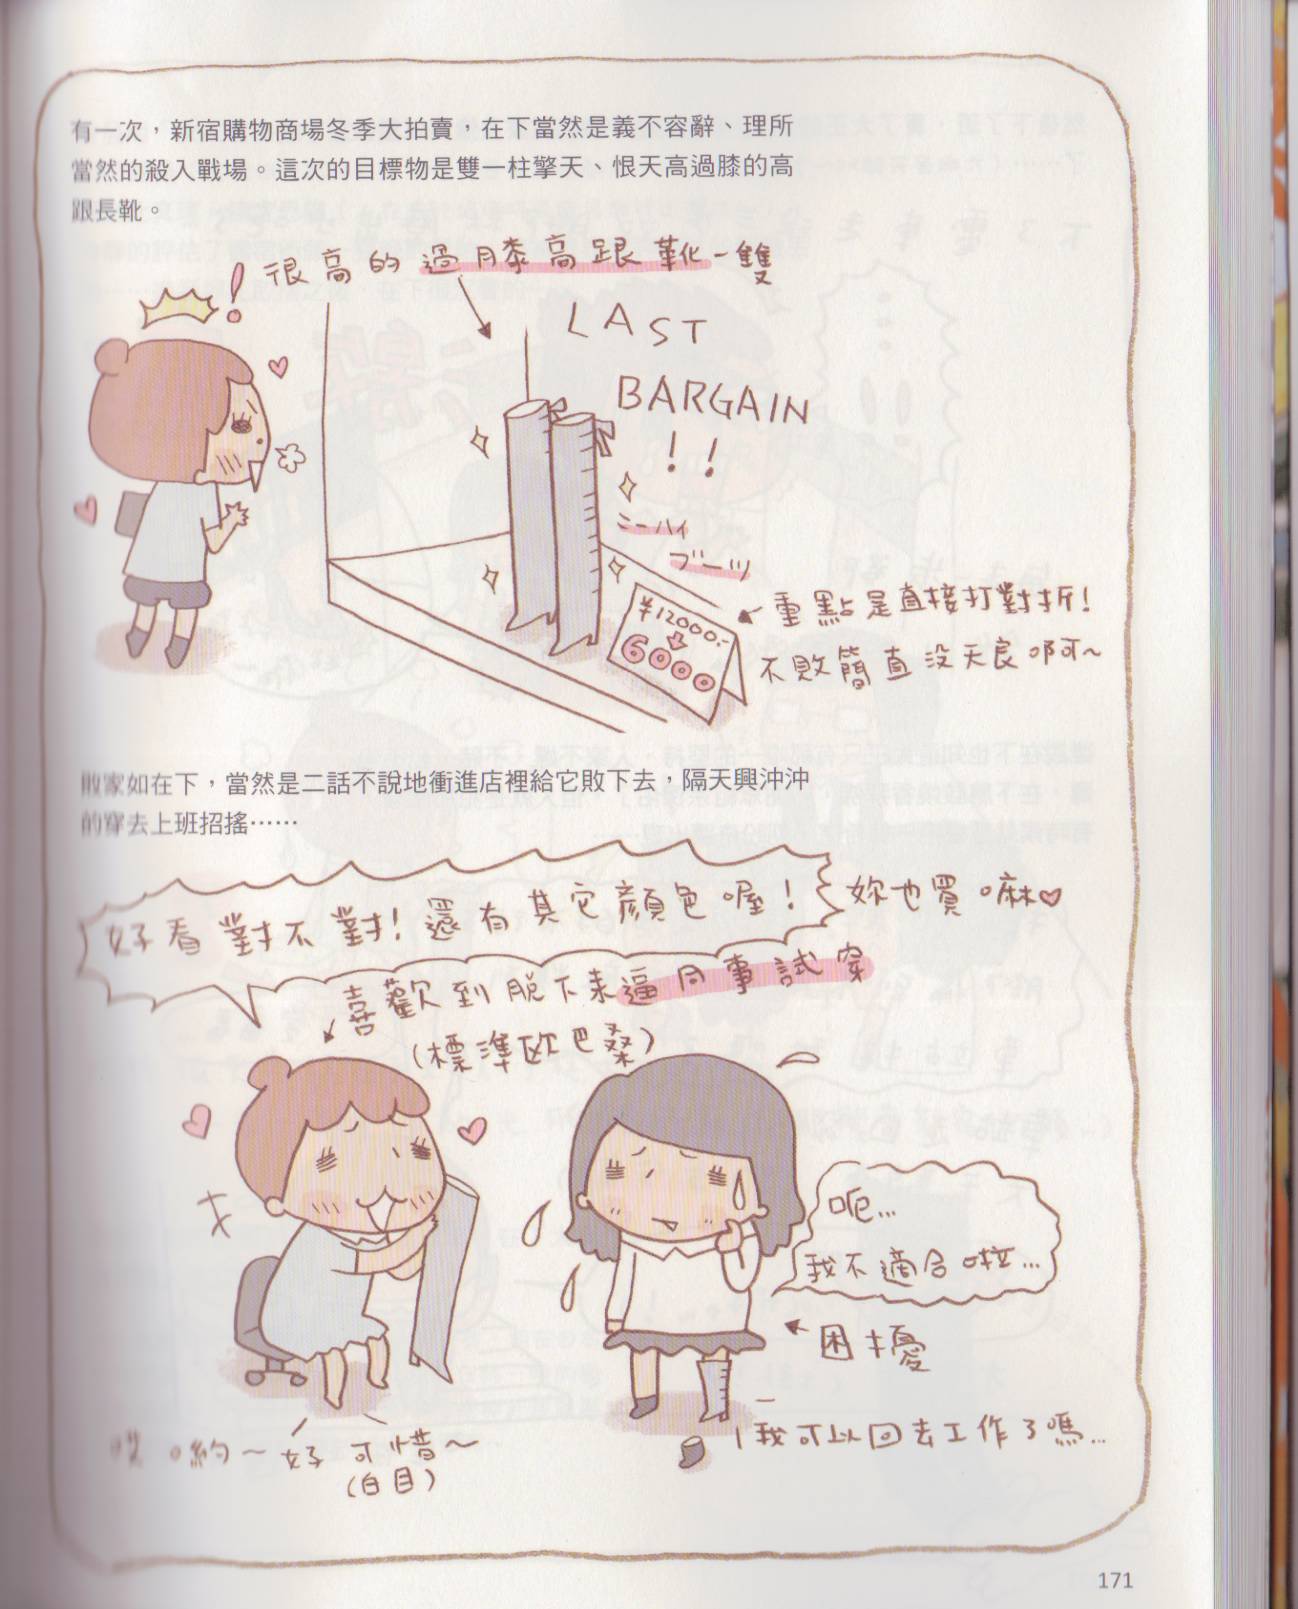 有一次，新宿購物商場冬季大拍賣，在下當然是義不容辭、理所
當然的殺入戰場。這次的目標物是雙一柱擎天、恨天高過膝的高
跟長靴。
很高的過膝高跟靴一雙
LAST
BARGAIN
!!
ニーハイ
ブーツ
¥12000.-
6000
重點是直接打對折!
不敗簡直沒天良啊~
敗家如在下，當然是二話不說地衝進店裡給它敗下去，隔天興沖沖
的穿去上班招搖……
好看對不對!還有其它顏色喔!
妳也買嘛♥
喜歡到脫下來逼同事試穿
(標準歐巴桑)
呃...
我不適合啦...
困擾
我可以回去工作了嗎...
哎喲~好可惜~
(白目)
171